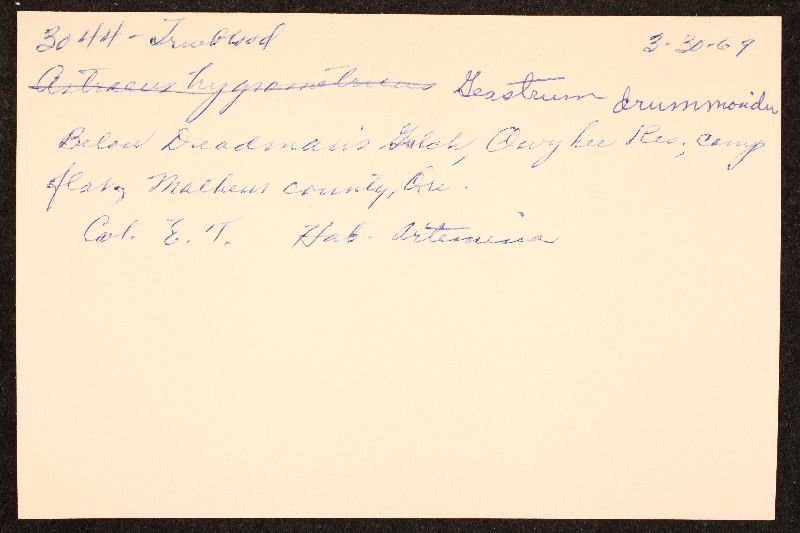 3044 - Trueblood 3-30-69
Astraeus hygrometricus Geastrum drummondii
Below Deadman's Gulch, Owyhee Res., camp
flat, Malheur county, Ore.
Col. E. T. Hab - Artemisia